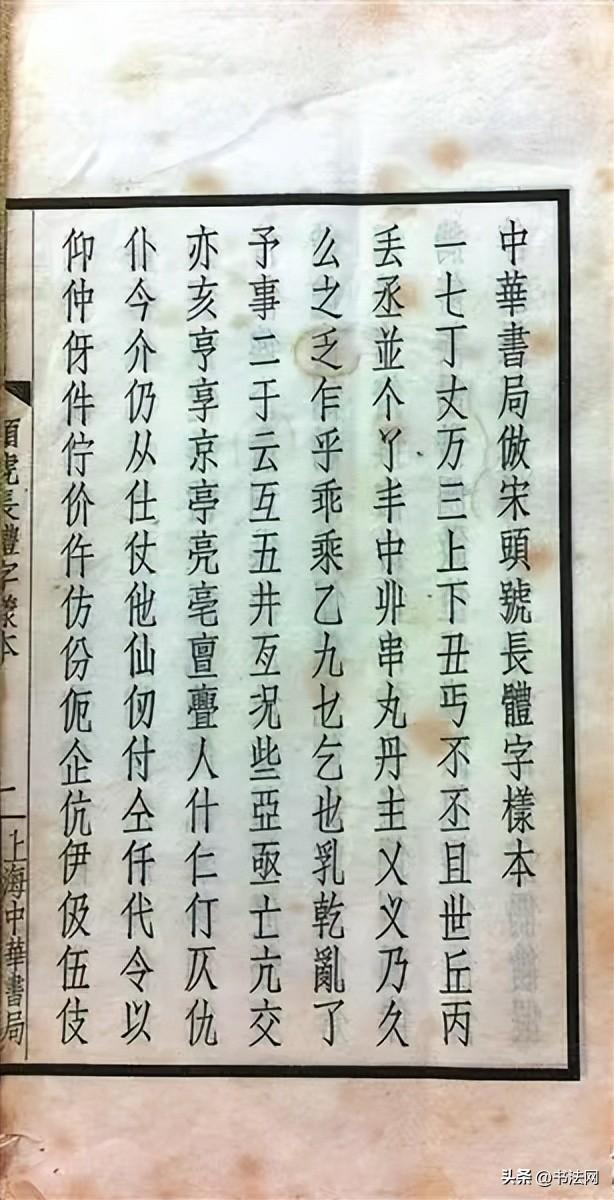 中華書局倣宋頭號長體字樣本
一七丁丈万三上下丑丐不丕且世丘丙
丟丞並个丫丰中丱串丸丹主乂义乃久
么之乏乍乎乖乘乙九乜乞也乳乾亂了
予事二于云互五井亙况些亞亟亡亢交
亦亥亨享京亭亮亳亶亹人什仁仃仄仇
仆今介仍从仕仗他仙仞付仝仟代令以
仰仲伢件佇价仵仿份伌企伉伊伋伍伎
頭號長體字樣本
二
上海中華書局
头条 @书法网